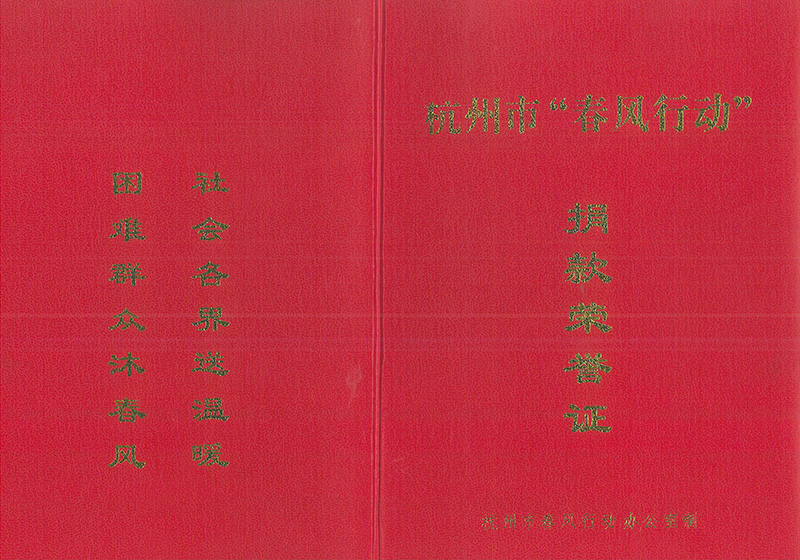 杭州市“春风行动”
捐款荣誉证
杭州市春风行动办公室制
社会各界送温暖
困难群众沐春风